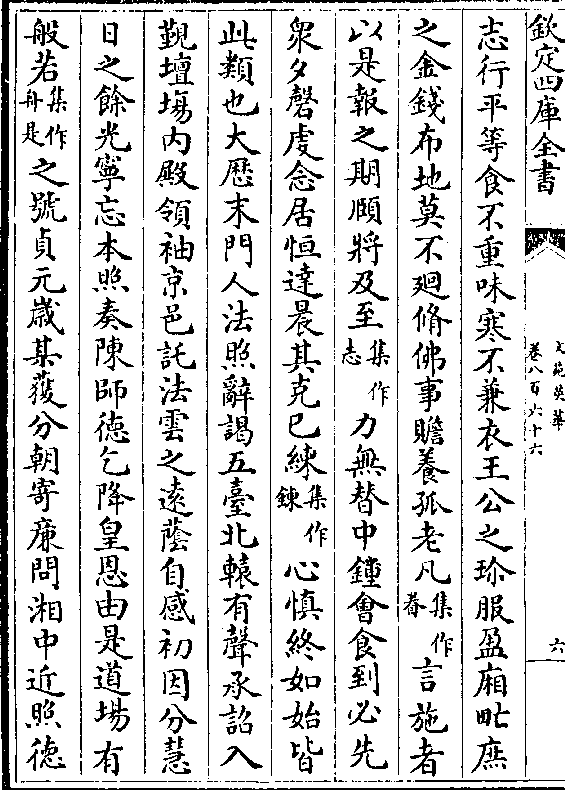 欽定四庫全書
文苑英華
卷八百六十六
六
志行平等食不重味寒不兼衣王公之珍服盈廂甿庶
之金錢布地莫不廻脩佛事贍養孤老凡集作眷言施者
以是報之期頤將及至集作志力無替中鐘會食到必先
衆夕磬虔念居恒達晨其克已練集作鍊心慎終如始皆
此類也大歴末門人法照辭謁五臺北轅有聲承詔入
覲壇場内殿領袖京邑託法雲之遠蔭自感初因分慧
日之餘光寧忘本照奏陳師德乞降皇恩由是道場有
般若集作舟是之號貞元歲某獲分朝寄廉問湘中近照德